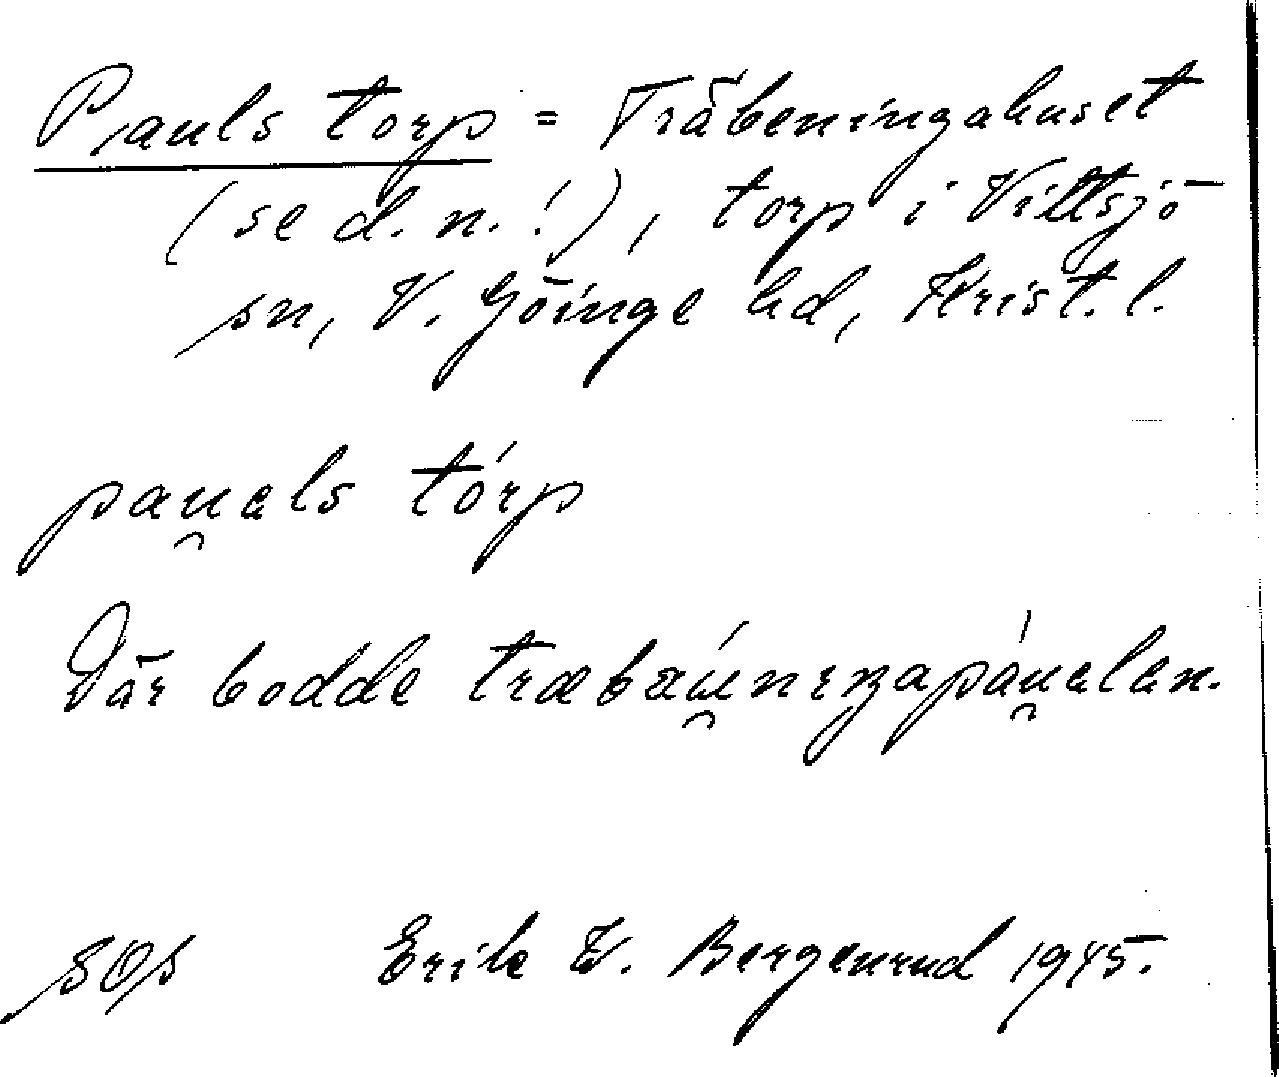 Pauls torp = Träbeningahuset
(se d. n.!), torp i Vittsjö
sn, V. Göinge hd, Krist. l.
pau̯əls tórp
Där bodde
Erik W. Bergenrud 1945.